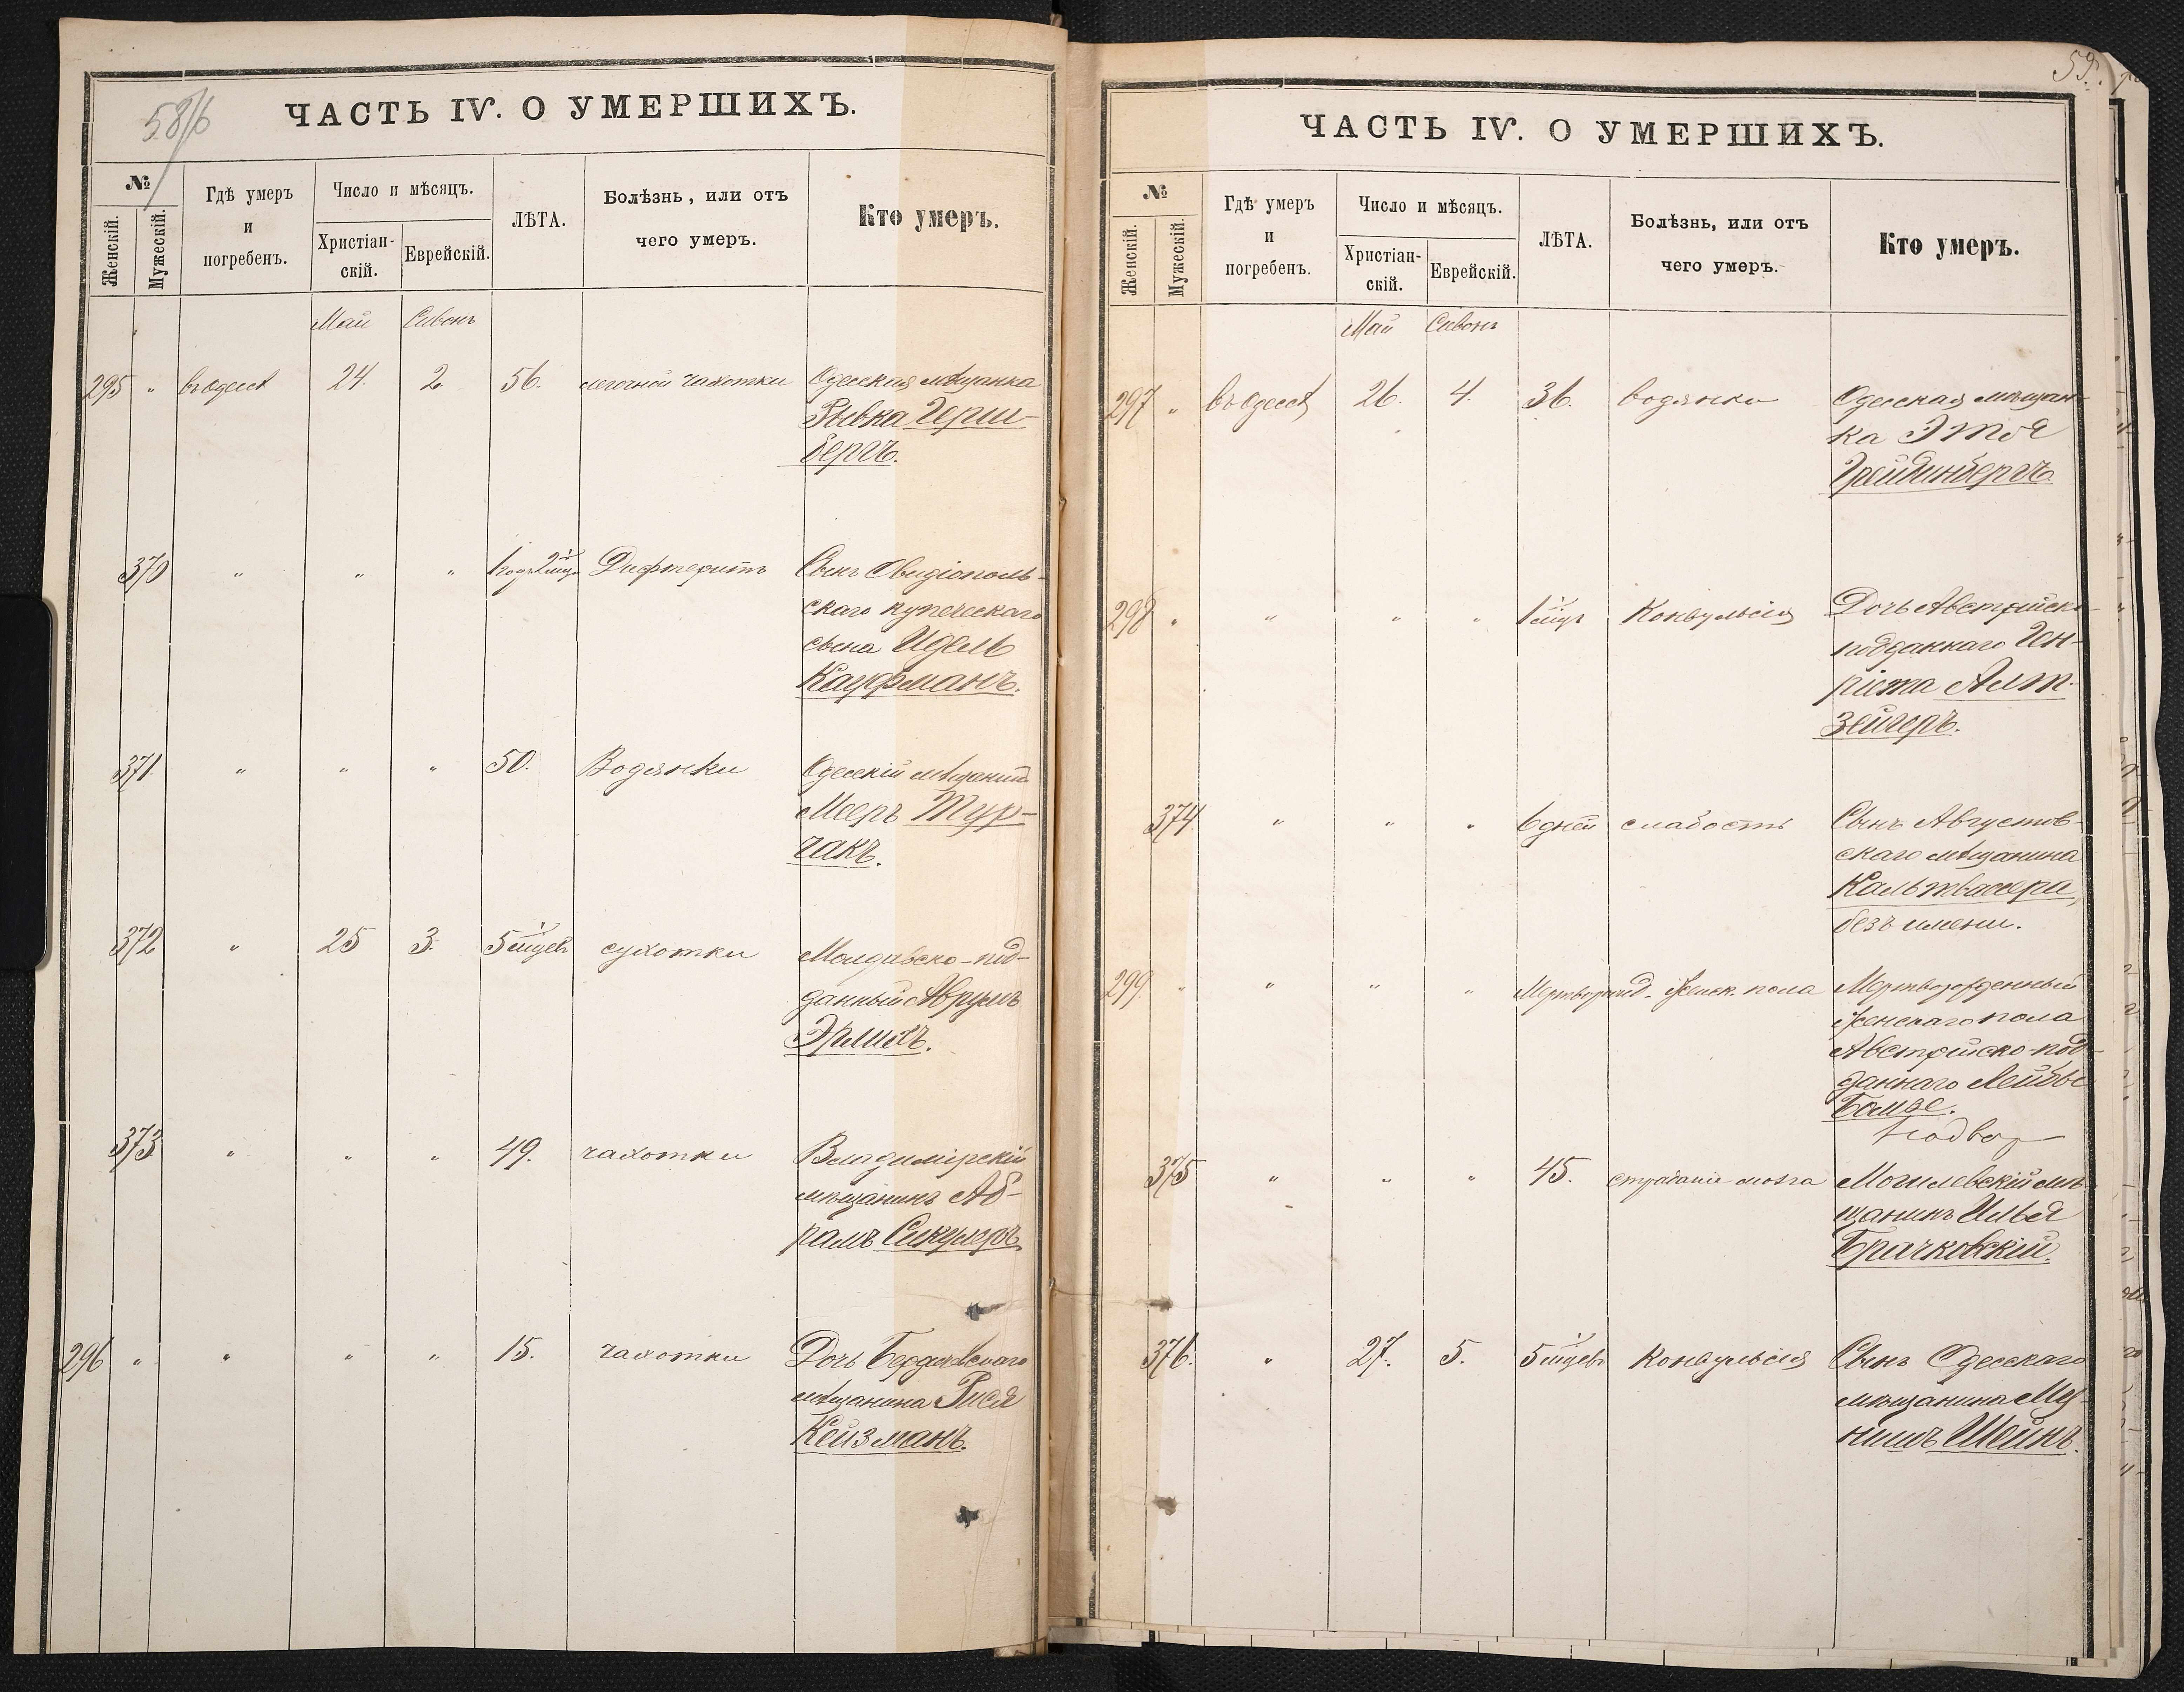 58/б
ЧАСТЬ IV. О УМЕРШИХЪ.
№
Женскій.
Мужескій.
Гдѣ умеръ
и
погребенъ.
Число и мѣсяцъ.
Христіан-
скій.
Еврейскій.
ЛѢТА.
Болѣзнь, или отъ
чего умеръ.
Кто умеръ.
Май Сивонъ
295 " въ Одессѣ 24. 2. 56. легочной чахотки Одесская мѣщанка
Рывка Герш-
бергъ.
370 " " " 1 годъ 2 мѣс. Дифтеритъ Сынъ Овидіополь-
скаго купеческаго
сына Идель
Кауфманъ.
371 " " " 50. Водянки Одесскій мѣщанинъ
Мееръ Тур-
чакъ.
372 " 25 3. 5 мѣсцевъ сухотки Молдавско-под-
данный Аврумъ
Эрлихъ.
373 " " " 49. чахотки Владимірскій
мѣщанинъ Аб-
рамъ Сикулеръ
296 " " " " 15. чахотки Дочь Бердичевскаго
мѣщанина Рися
Кейзманъ.
59.
ЧАСТЬ IV. О УМЕРШИХЪ.
№
Женскій.
Мужескій.
Гдѣ умеръ
и
погребенъ.
Число и мѣсяцъ.
Христіан-
скій.
Еврейскій.
ЛѢТА.
Болѣзнь, или отъ
чего умеръ.
Кто умеръ.
Май Сивонъ
297 " въ Одессѣ 26. 4. 36. водянки Одесская мѣщан-
ка Этя
Грейдинбергъ
298 " " " " 1 мѣсц. Конвульсія Дочь Австрійско-
подданнаго Ген-
ріета Алт-
зейгеръ.
374 " " " 6 дней слабость Сынъ Августов-
скаго мѣщанина
Кальтвасера,
безъ имени.
299. " " " " Мертворожд. женск. пола Мертворожденный
женскаго пола
Австрійско-под-
даннаго Лейбы
Бомзе.
375 " " " 45. страданія мозга Могилевскій мѣ-
щанинъ Илья
Брачковскій.
376. " 27. 5. 5 мѣсцевъ Конвульсія Сынъ Одесскаго
мѣщанина Му-
нишъ Шейнъ.